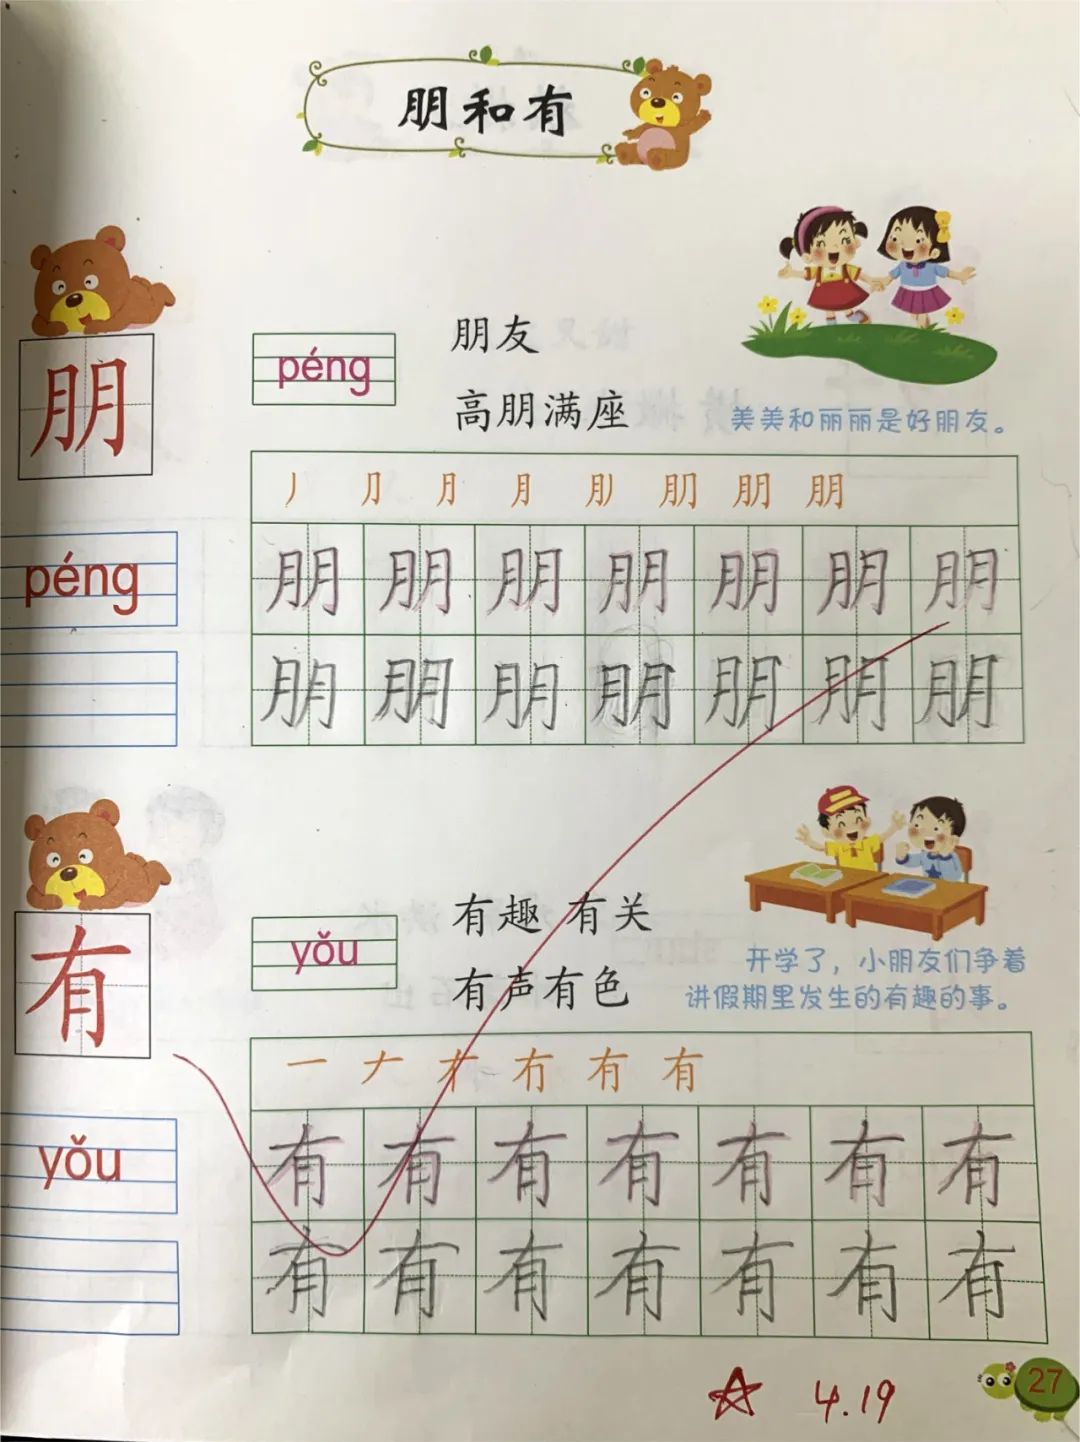 朋和有
朋
péng
朋友
高朋满座
美美和丽丽是好朋友。
丿 ⺆ 月 月 刖 朋 朋 朋
péng
朋 朋 朋 朋 朋 朋 朋
朋 朋 朋 朋 朋 朋 朋
有
yǒu
有趣 有关
有声有色
开学了，小朋友们争着
讲假期里发生的有趣的事。
一 ナ 冇 有 有
yǒu
有 有 有 有 有 有 有
有 有 有 有 有 有 有
4.19
27